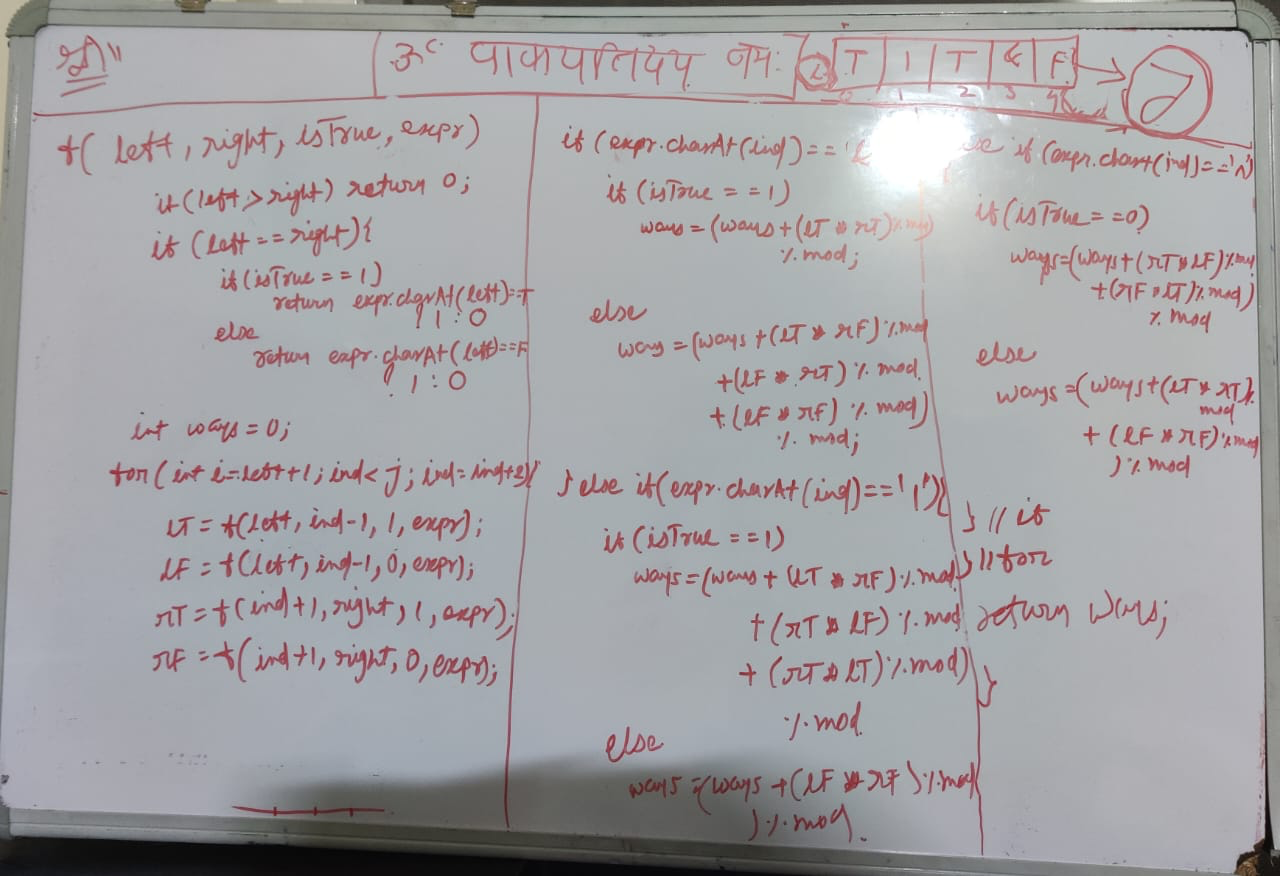 श्री॥
ॐ पाकपतिदेय नमः
T | T & F
0 1 2 3 4
f( left, right, isTrue, expr)
if(left > right) return 0;
if (left == right){
if(isTrue == 1)
return expr.charAt(left)==T
? 1 : 0
else
return expr.charAt(left)==F
? 1 : 0
int ways = 0;
for(int i=left+1; ind< j; ind=ind+2){
lT = f(left, ind-1, 1, expr);
lF = f(left, ind-1, 0, expr);
rT = f(ind+1, right, 1, expr);
rF = f(ind+1, right, 0, expr);
if (expr.charAt(ind)== '
if (isTrue == 1)
ways = (ways + (lT * rT)%mod)
% mod;
else
way = (ways + (lT * rF) % mod
+ (lF * rT) % mod
+ (lF * rF) % mod)
% mod;
} else if(expr.charAt(ind)=='|'){
if (isTrue == 1)
ways = (ways + (lT * rF) % mod
+ (rT * lF) % mod
+ (rT * lT) % mod)
% mod
else
ways = (ways + (lF * rF) % mod
) % mod.
if (expr.charAt(ind)=='^')
if(isTrue == 0)
ways=(ways+(rT * lF)%mod
+(rF * lT)% mod)
% mod
else
ways = (ways + (lT * rT)%
mod
+ (lF * rF)%mod
)% mod
} // if
} // for
return ways;
}